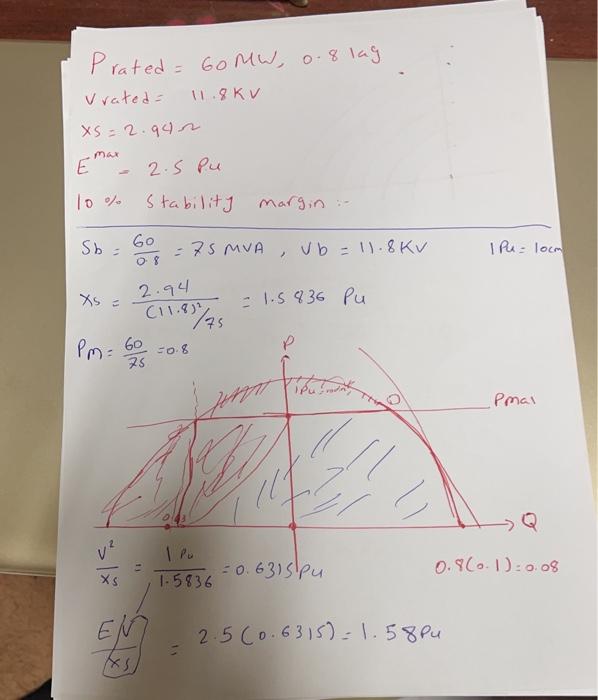 Prated = 60MW, 0.8 lag
Vrated = 11.8 KV
XS = 2.94 Ω
E max = 2.5 Pu
10 % Stability margin :-
Sb = 60/0.8 = 75 MVA , Vb = 11.8KV 1Pu = 10cm
Xs = 2.94/((11.8)²/75) = 1.5836 Pu
Pm = 60/75 = 0.8
P
1Pu
Pmax
Q
V²/Xs = 1 Pu/1.5836 = 0.6315Pu 0.8(0.1) = 0.08
E|V|/Xs = 2.5(0.6315) = 1.58Pu